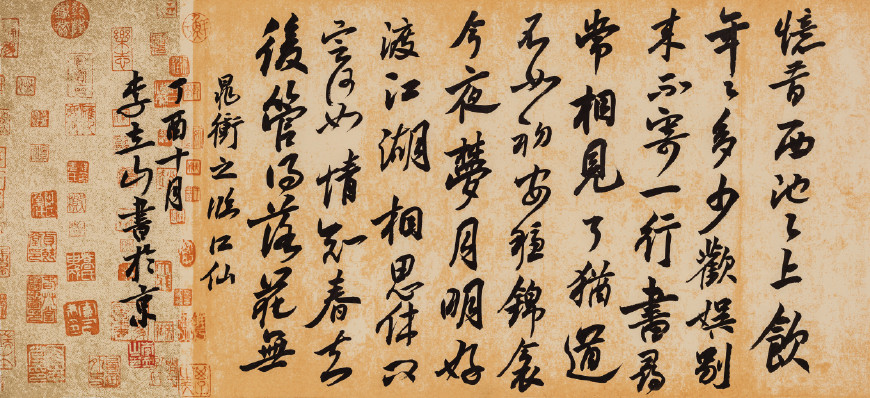 憶昔西池〻上飲
年〻多少歡娱别
来不寄一行書尋
常相見了猶道
不如初安穩錦衾
今夜夢月明好
渡江湖相思休问
定何如情知春去
後管得落花無
晁衝之临江仙
丁酉十月
李立山書於京